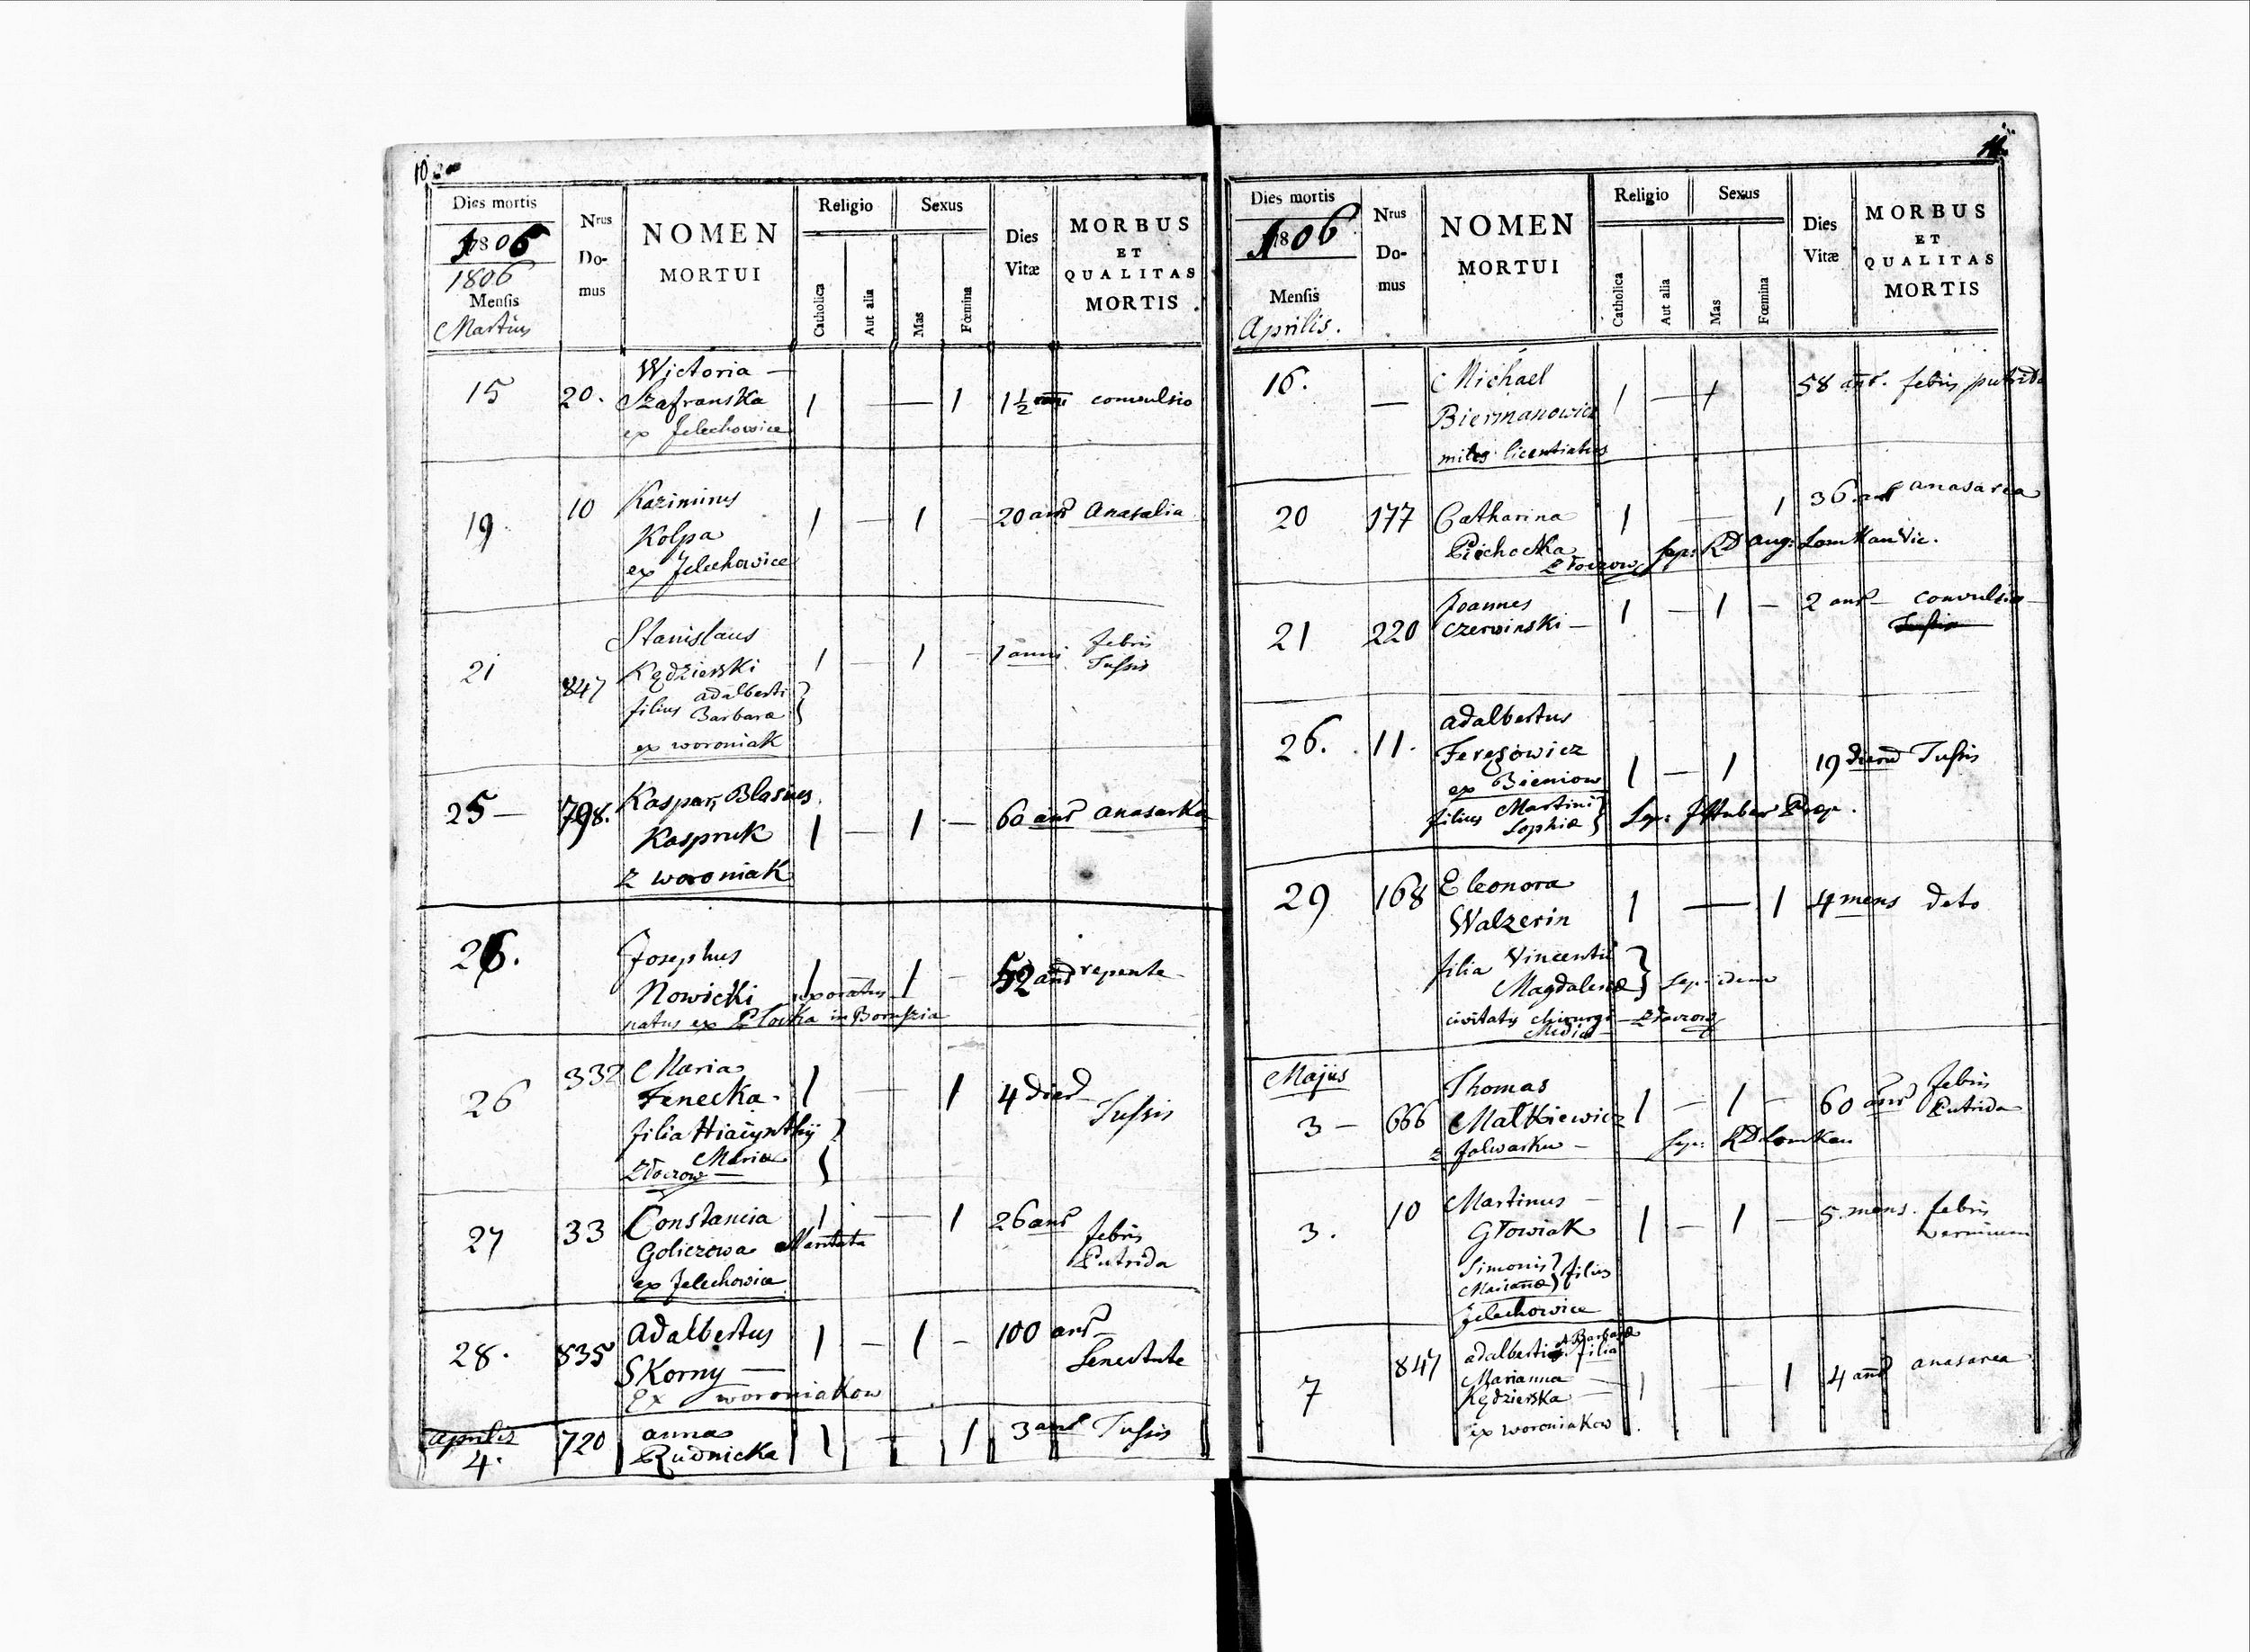 10
Dies mortis
1806
1806
Mensis
Martius
Nrus
Do-
mus
NOMEN
MORTUI
Religio
Catholica
Aut alia
Sexus
Mas
Fœmina
Dies
Vitæ
MORBUS
ET
QUALITAS
MORTIS
15 20. Wictoria —
Szafranska 1 — 1 1½ convulsio
ex Jelechowice
19. 10 Kazimirus
Kolpa 1 — 1 — 20 anr Anasalia
ex Jelechowice
21 847 Stanislaus
Kędzierski 1 — 1 — 1 anni febris
Tussis
filius adalberti
Barbaræ
ex woroniak
25 — 798. Kaspar, Blasius
Kaspruk 1 — 1 — 60 anr anasarka
z woroniak
26. Josephus
Nowicki uxoratus 1 1 — 52 anr repente
natus ex Plocka in Borussia
26 332 Maria
Fenecka 1 — 1 4 dier
Tussis
filia Hiacynthij
Mariæ
Złoczow —
27 33 Constancia 1 — 1 26 anr
Goliczowa Maritata febris
Putrida
ex Jelechowice
28. 835 Adalbertus 1 — 1 — 100 anr
Skorny — Senectute
Ex woroniakow
aprilis
4. 720 anna
Rudnicka 1 — 1 3 anr Tussis
11
Dies mortis
1806
Mensis
Aprilis.
Nrus
Do-
mus
NOMEN
MORTUI
Religio
Catholica
Aut alia
Sexus
Mas
Fœmina
Dies
Vitæ
MORBUS
ET
QUALITAS
MORTIS
16. — Michael
Biermanowicz 1 — 1 58 anr. febris putrida
miles licentiatus
20 177 Catharina 1 — 1 36 anr anasarca
Piechocka
Złoczow sep: RD Aug: Lomkan Vic.
21 220 Joannes
Czerwinski — 1 — 1 — 2 anr — convulsio
26. 11. adalbertus
Feregowicz
ex Bieniow 1 — 1 19 dierum Tussis
filius Martini
Sophiæ Sep: JHuber Præp.
29 168 Eleonora
Walzerin 1 — 1 4 mens deto
filia Vincentii
Magdalenæ sep: idem
civitatis chirurgi — Złoczow
Medici
Majus
3 — 666 Thomas
Małkiewicz 1 — 1 — 60 anr febris
Putrida
z folwarku — sep: RD Lomkan
3. 10 Martinus —
Głowiak 1 — 1 — 5 mens. febris
verminum
Simonis
Mariannæ filius
Jelechowice
7 847 adalberti et Barbaræ filia
Marianna —
Kędzierska — 1 — 1 4 anr anasarca
ex woroniakow